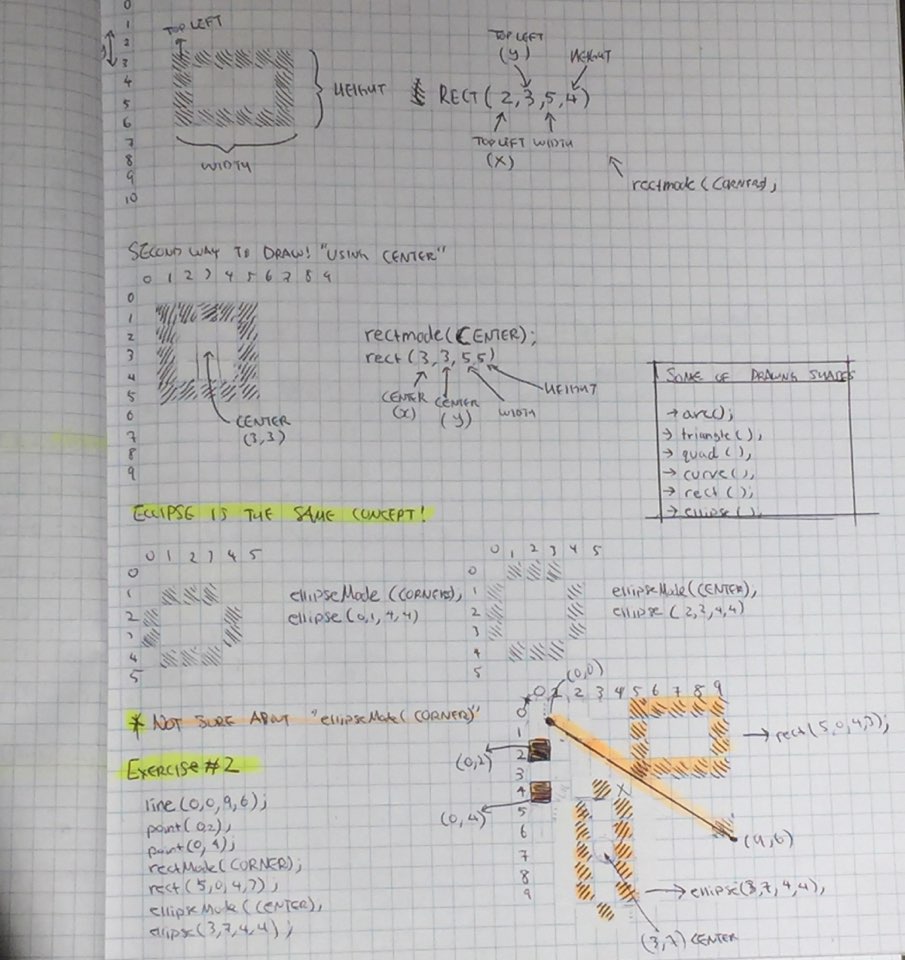 0
1
2
3
4
5
6
7
8
9
10
TOP LEFT
HEIGHT
WIDTH
TOP LEFT
(y)
HEIGHT
RECT( 2,3,5,4)
TOP LEFT WIDTH
(X)
rectmode (CORNER);
SECOND WAY TO DRAW! "USING CENTER"
0 1 2 3 4 5 6 7 8 9
0
1
2
3
4
5
6
7
8
9
CENTER
(3,3)
rectmode(CENTER);
rect (3,3,5,5)
CENTER
(x)
CENTER
(y)
WIDTH
HEIGHT
SOME OF DRAWING SHAPES
→ arc();
→ triangle(),
→ quad (),
→ curve(),
→ rect ();
→ ellipse (),
ECLIPSE IS THE SAME CONCEPT!
0 1 2 3 4 5
0
1
2
3
4
5
ellipseMode (CORNER),
ellipse (0,1,4,4)
0 1 2 3 4 5
0
1
2
3
4
5
ellipseMode(CENTER),
ellipse (2,3,4,4)
* NOT SURE ABOUT "ellipseMode( CORNER)"
EXERCISE #2
line (0,0,9,6);
point (0,2),
point(0,4);
rectMode(CORNER);
rect(5,0,4,7);
ellipseMode (CENTER),
ellipse(3,7,4,4);
(0,0)
0 1 2 3 4 5 6 7 8 9
0
1
2
3
4
5
6
7
8
9
(0,2)
(0,4)
X
→ rect(5,0,4,3);
(9,6)
→ ellipse(3,7,4,4),
(3,7) CENTER